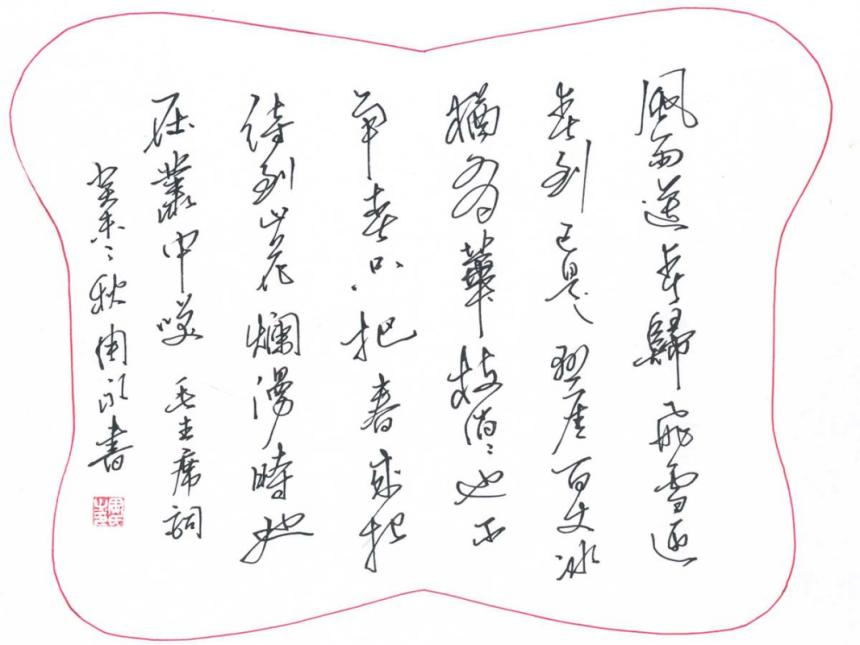 風雨送春歸飛雪迎
春到已是懸崖百丈冰
猶有華枝俏〻也不
爭春只把春來報
待到山花爛漫時她
在叢中咲 毛主席詞
癸未秋書